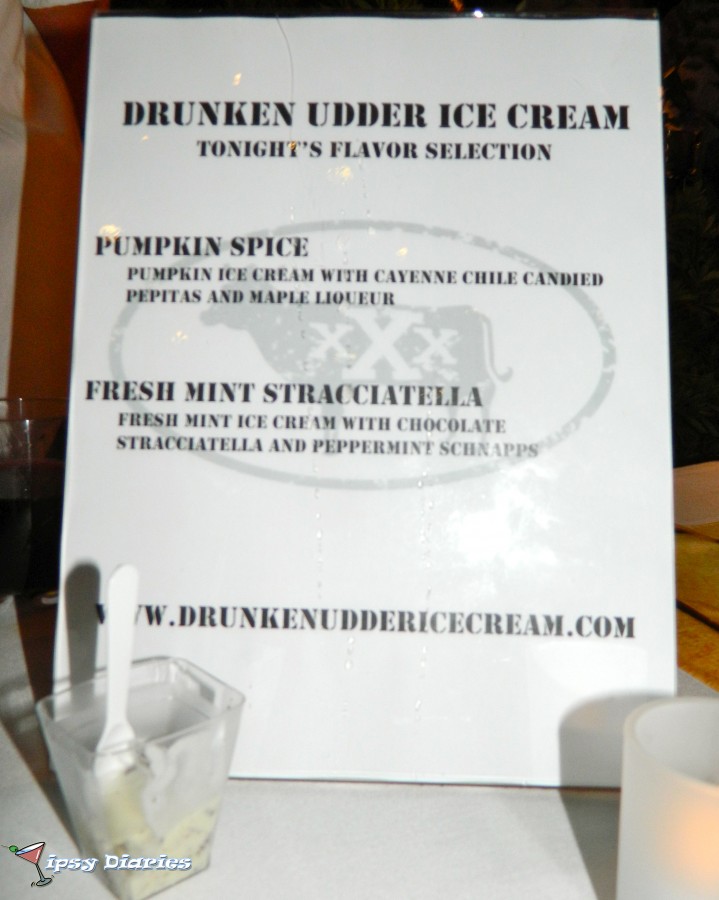 DRUNKEN UDDER ICE CREAM
TONIGHT'S FLAVOR SELECTION
PUMPKIN SPICE
PUMPKIN ICE CREAM WITH CAYENNE CHILE CANDIED
PEPITAS AND MAPLE LIQUEUR
xXx
FRESH MINT STRACCIATELLA
FRESH MINT ICE CREAM WITH CHOCOLATE
STRACCIATELLA AND PEPPERMINT SCHNAPPS
WWW.DRUNKENUDDERICECREAM.COM
Tipsy Diaries